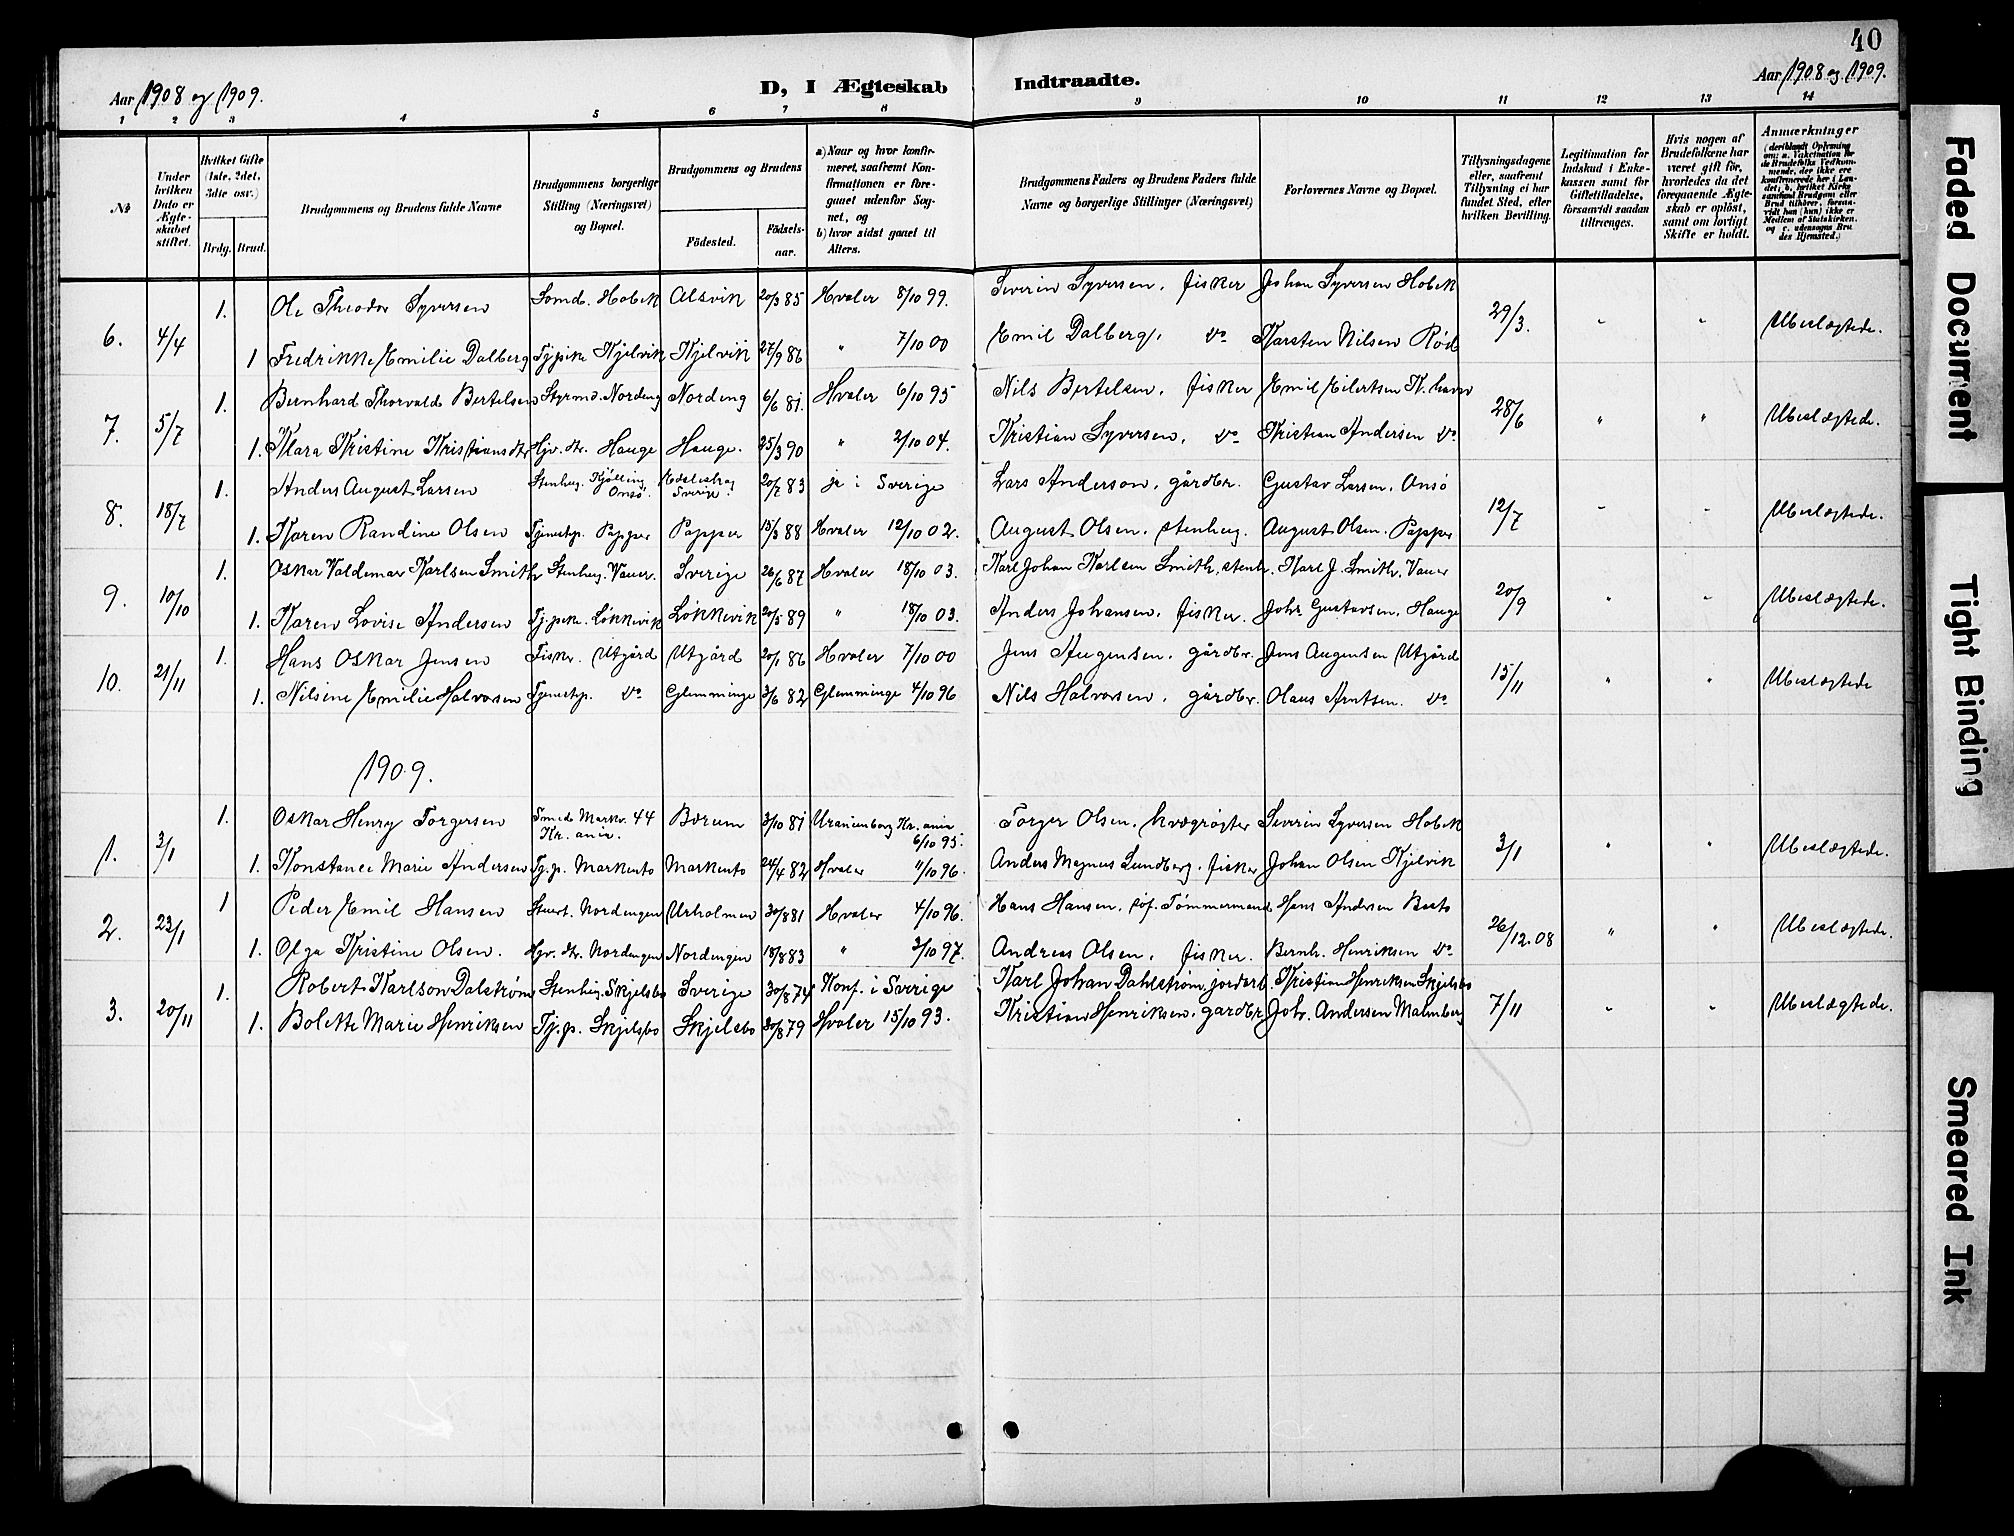 40
Aar 1908 og 1909. D, I Ægteskab Indtraadte. Aar 1908 og 1909.
1 2 3 4 5 6 7 8 9 10 11 12 13 14
No
Under hvilken Dato er Ægteskabet stiftet.
Hvilket Gifte (1ste, 2det, 3die osv.)
Brdg. Brud.
Brudgommens og Brudens fulde Navne
Brudgommens borgerlige Stilling (Næringsvei) og Bopæl.
Brudgommens og Brudens
Födested. Födsels-aar.
a) Naar og hvor konfirmeret, saafremt Konfirmationen er foregaaet udenfor Sognet, og
b) hvor sidst gaaet til Alters.
Brudgommens Faders og Brudens Faders fulde Navne og borgerlige Stillinger (Næringsvei)
Forlovernes Navne og Bopæl.
Tillysningsdagene eller, saafremt Tillysning ei har fundet Sted, efter hvilken Bevilling.
Legitimation for Indskud i Enkekassen samt for Giftetilladelse, forsaavidt saadan tiltrænges.
Hvis nogen af Brudefolkene har været gift för, hvorledes da det foregaaende Ægteskab er oplöst, samt om lovligt Skifte er holdt.
Anmærkninger (deriblandt Oplysning om: a. Vakcination for de Brudefolks Vedkommende, der ikke ere konfirmerede her i Landet; b. hvilket Kirkesamfund Brudgom eller Brud tilhörer, forsaavidt han (hun) ikke er Medlem af Statskirken, og c. udensogns Brudes Hjemsted.)
6. 4/4 1. Ole Theodor Syversen Somd. Hobek Alsvik 20/3 85 Hvaler 8/10 99. Severin Syversen, fisker Johan Syversen Hobek 29/3. " " Ubeslægtede.
1 Fredrikke Emilie Dalberg Tj.pike Kjelvik Kjelvik 27/9 86 " 7/10 00 Emil Dalberg, do Karsten Nilsen Rød
7. 5/7 1. Bernhard Thorvald Bertelsen Styrmd. Nordeng Nordeng 6/6 81. Hvaler 6/10 95 Nils Bertelsen, fisker Emil Eilertsen K. havn 28/6 " " Ubeslægtede.
1. Klara Kristine Kristiansdtr Hjv. dtr. Hauge Hauge. 25/3 90 " 2/10 04. Kristian Syversen, do Kristian Andersen do
8. 18/7 1. Anders August Larsen Stenhug. Kjølling Onsö. Sverige. 20/7 83 je i Sverige Lars Anderson, gårdbr. Gustav Larsen, Onsö 12/7 " " Ubeslægtede.
1. Karen Randine Olsen Tjenestep. Papper Papper 15/3 88 Hvaler 12/10 02. August Olsen, stenhug. August Olsen, Papper
9. 10/10 1. Oskar Valdemar Karlsen Smith Stenhug. Vauer. Sverige 26/6 87 Hvaler 18/10 03. Karl Johan Karlsen Smith, stenh. Karl J. Smith, Vauer 20/9 " " Ubeslægtede.
1. Karen Lovise Andersen Tj. pike. Løkkevik Løkkevik 20/5 89 " 18/10 03. Anders Johansen, fisker. Johs Gustavsen, Hauge
10. 21/11 1. Hans Oskar Jensen Fisker. Utgård Utgård 20/1 86 Hvaler 7/10 00 Jens Augensen, gårdbr. Jens Augensen Utgård 15/11 " " Ubeslægtede
1. Nilsine Emilie Halvorsen Tjenestp. do Glemminge 3/6 82 Glemminge 4/10 96 Nils Halvorsen, gårdbr. Olaus Arntsen. do
1909.
1. 3/1 1. Oskar Henry Torgersen Smed Markv. 44 Kr. ania. Bærum 3/10 81 Uranienborg Kr. ania 6/10 95. Torger Olsen, kvægrøgter Severin Syversen Hobek 3/1 " " Ubeslægtede.
1. Konstance Marie Andersen Tj. p. Markento Markento 24/4 82 Hvaler 11/10 96. Anders Magnus Lundberg, fisker Johan Olsen Kjelvik
2. 23/1 1 Peder Emil Hansen Stuert. Nordengen Urholmen 30/8 81 Hvaler 4/10 96. Hans Hansen, söf. Tömmermand Hans Andersen Basto 26/12. 08 " " Ubeslægtede.
1. Olga Kristine Olsen. Hjv. dtr. Nordengen Nordengen 18/8 83 " 3/10 97. Andreas Olsen, fisker. Bernh. Henriksen do
3. 20/11 1. Robert Karlson Dalstrøm Stenhug. Skjelsbo Sverige 30/8 74 Konf. i Sverige Karl Johan Dahlstrøm, jordarb. Kristian Henriksen Skjelsbo 7/11 " " Ubeslægtede.
1. Bolette Marie Henriksen Tj. p. Skjelsbo Skjelsbo 30/8 79 Hvaler 15/10 93. Kristian Henriksen, gardbr. Joh. Andersen Malmberg
Faded Document
Tight Binding
Smeared Ink